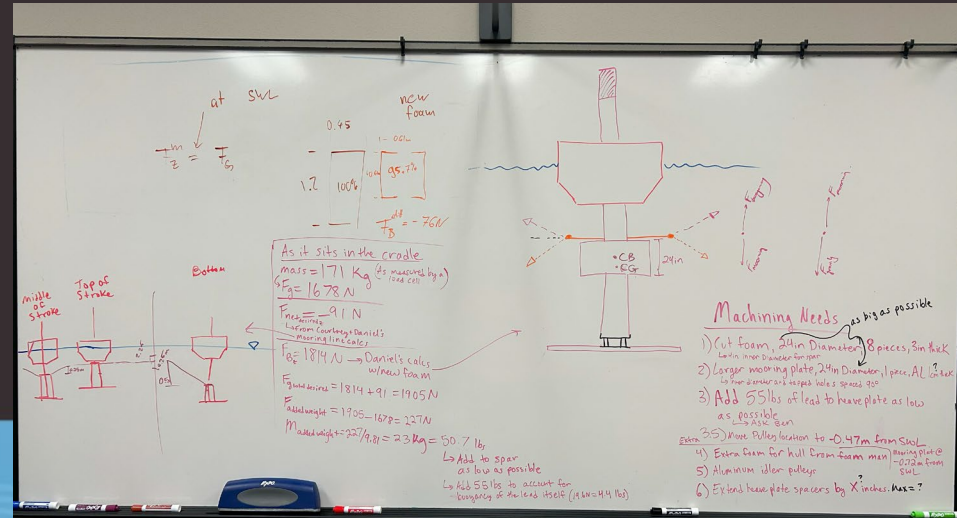 at SWL
F_z^m = F_G
new
foam
0.45
1.2
100%
95.7%
F_B^add = -76N
As it sits in the cradle
mass = 171 Kg (As measured by a
load cell)
Fg = 1678 N
Fnet desired = -91 N
↳ from Courtney + Daniel's
mooring line calcs
F_Bz = 1814 N → Daniel's calcs
w/new foam
Fg total desired = 1814 + 91 = 1905 N
F added weight = 1905 - 1678 = 227 N
m added weight = 227/9.81 = 23 Kg = 50.7 lbs
↳ Add to spar
as low as possible
↳ Add 55 lbs to account for
buoyancy of the lead itself (19.6N = 4.4 lbs)
middle
of
Stroke
Top of
Stroke
Bottom
•CB
•CG
24in
Machining Needs
as big as possible
1) Cut foam, 24in Diameter, 8 pieces, 3in thick
inner Diameter for spar
2) Larger mooring plate, 24in Diameter, 1 piece, AL
inner diameter and tapped holes spaced 90°
3) Add 55 lbs of lead to heave plate as low
as possible
↳ ASK Ben
Extra 3.5) Move Pulley location to -0.47m from SWL
mooring plate @
-0.72m from
SWL
4) Extra foam for hull from foam man
5) Aluminum idler pulleys
6) Extend heave plate spacers by X? inches. Max = ?
EXPO